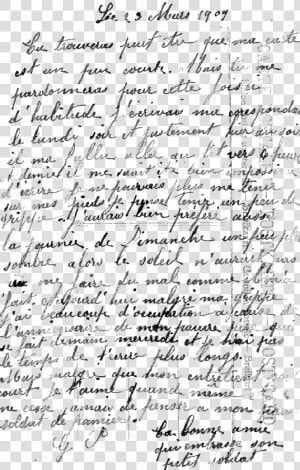 Le 23 Mars 1909
Tu trouveras peut être que ma carte
est un peu courte. Mais tu me
pardonneras pour cette fois
d'habitude j'écrivais ma correspondance
le lundi soir et justement hier au soir
il m'a fallu aller au lit vers 6 heures
et demie il me serait été bien impossible
d'écrire je ne pouvais plus me tenir
sur mes pieds je pense tenir un peu de
grippe J'aurais bien préféré aussi
la journée de Dimanche un peu plus
sombre alors le soleil n'aurait
me faire du mal comme il m'a
fait. aujourd'hui malgré ma grippe
j'ai beaucoup d'occupation à cause de
l'anniversaire de mon pauvre père qui
se fait demain mercredi et je n'ai pas
le temps de t'ecrire plus longs.
Mais malgré que mon entretient soit
court je t'aime quand meme
ne cesse amais de panser a mon
soldat de pamier.
G P
ta bonne amie
qui embrasse son
petit soldat